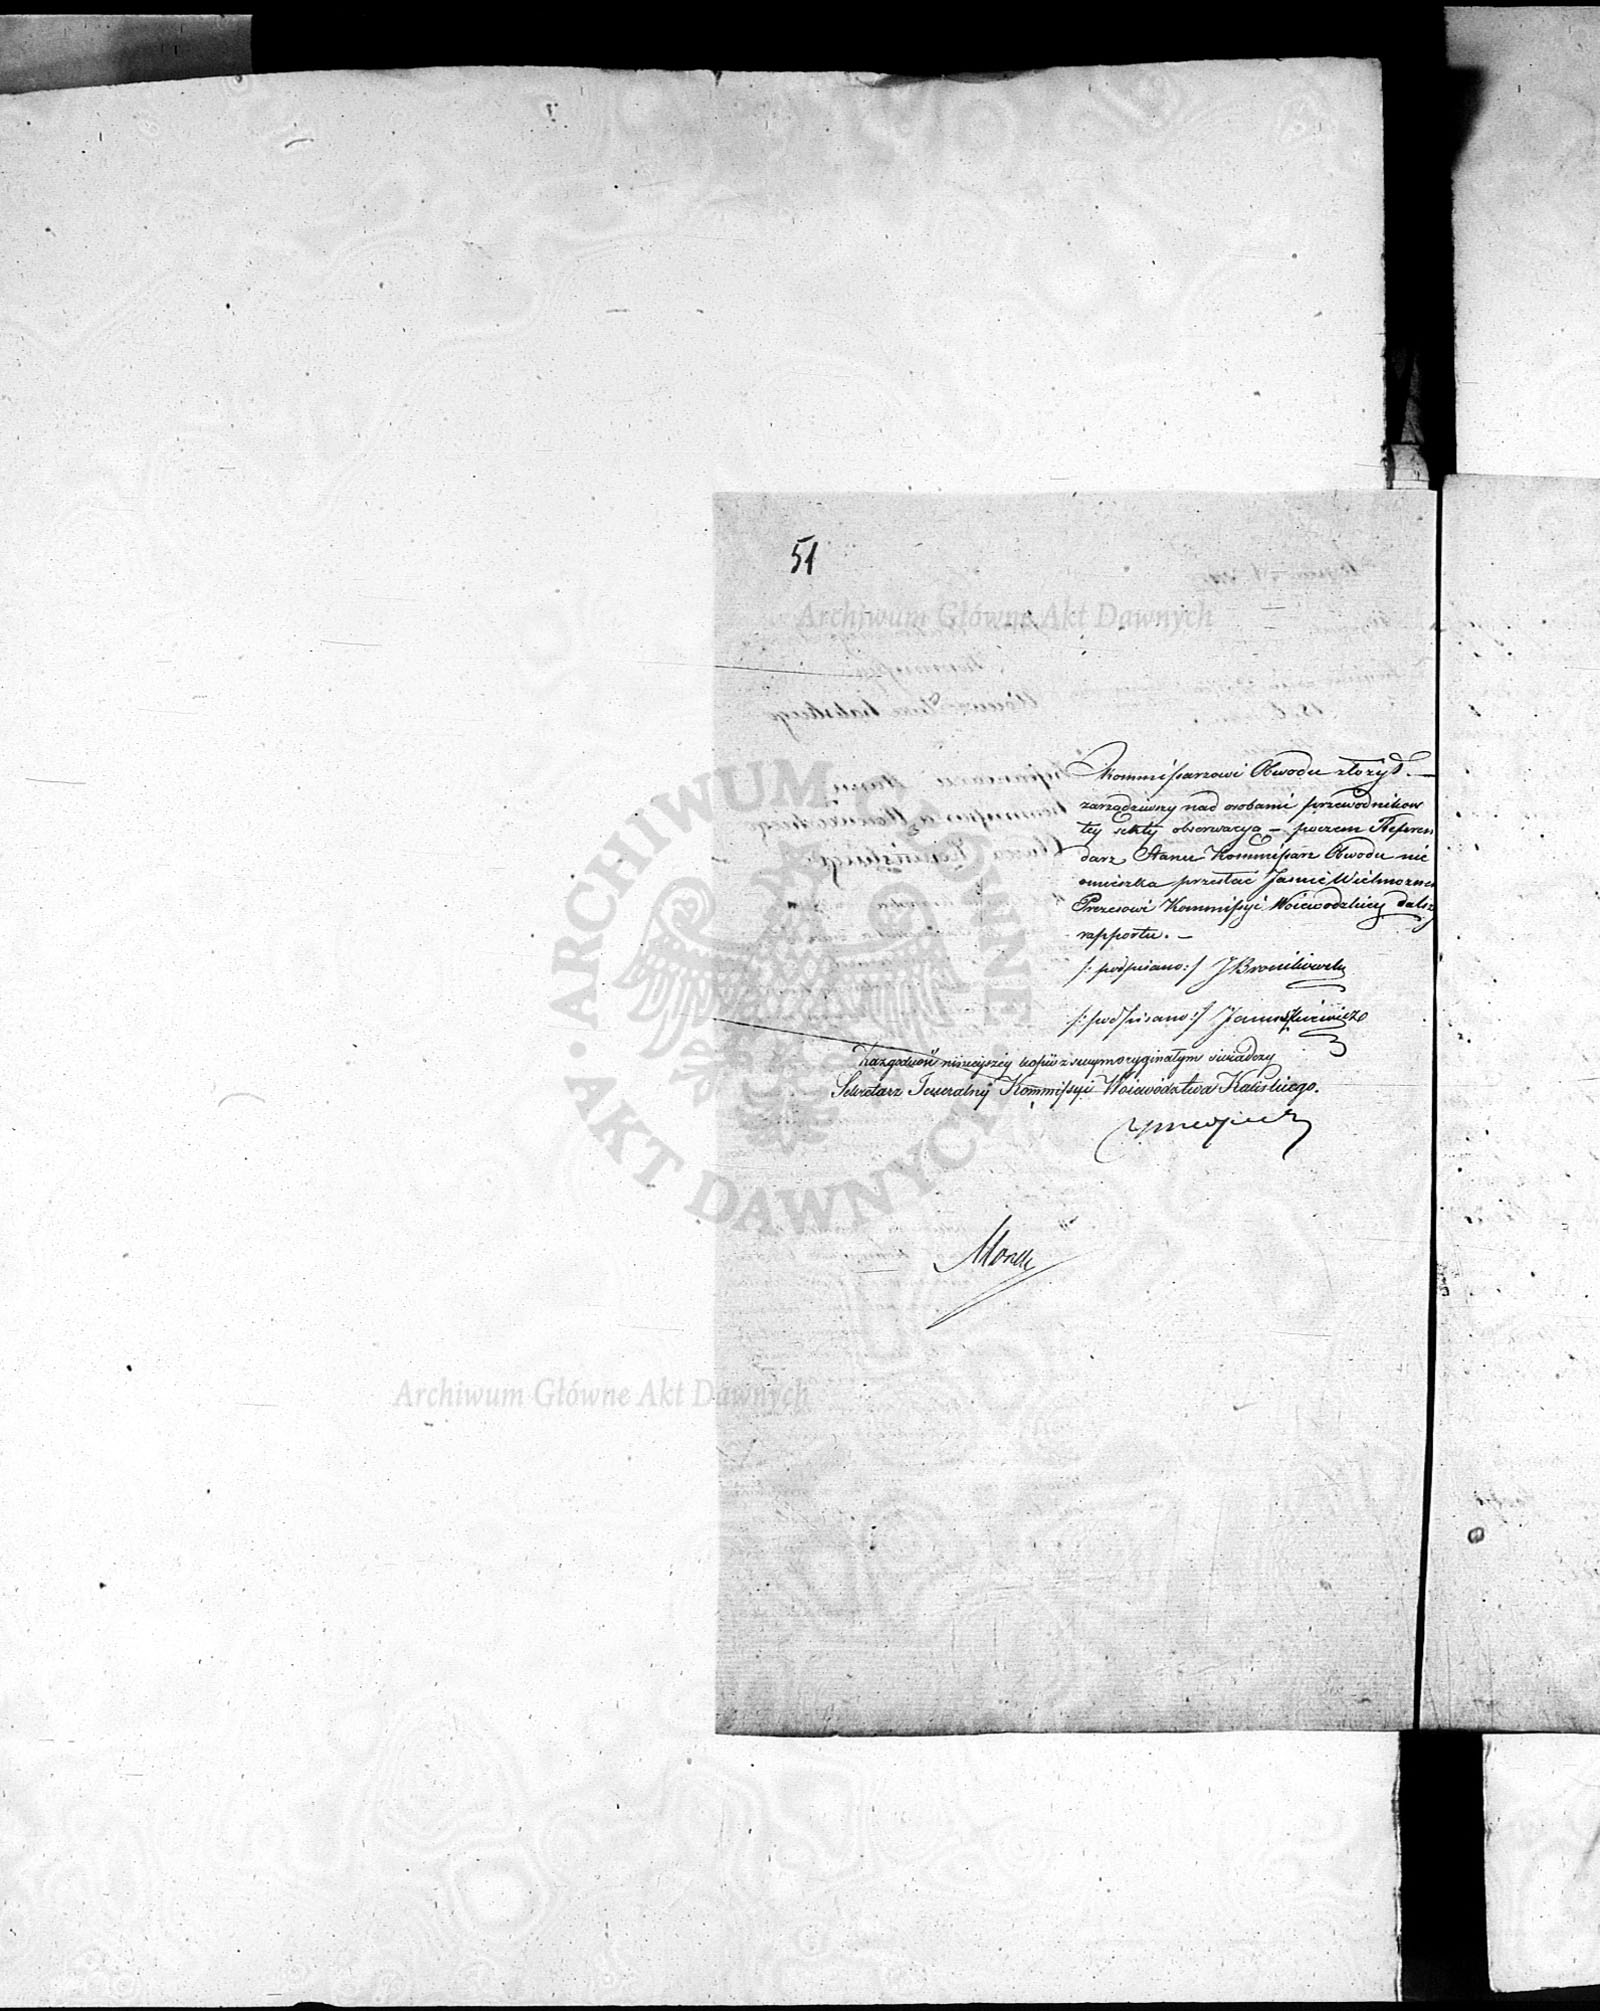 51
Kommissarzowi Obwodu złożył. —
zarządziwszy nad osobami przewodników
tey sekty obserwacyą — poczem Referen
darz Stanu Kommissarz Obwodu nie
omieszka przesłać Jaśnie Wielmożnemu
Prezesowi Kommissyi Woiewodzkiey dalsz
rapportu. —
/: podpisano :/ J Bronikowski
/: podpisano :/ Januszkiewicz
Za zgodność ninieyszey kopii z swym oryginałem świadczy
Sekretarz Jeneralny Kommissyi Woiewództwa Kaliskiego.
Archiwum Główne Akt Dawnych
ARCHIWUM GŁÓWNE
AKT DAWNYCH
Archiwum Główne Akt Dawnych